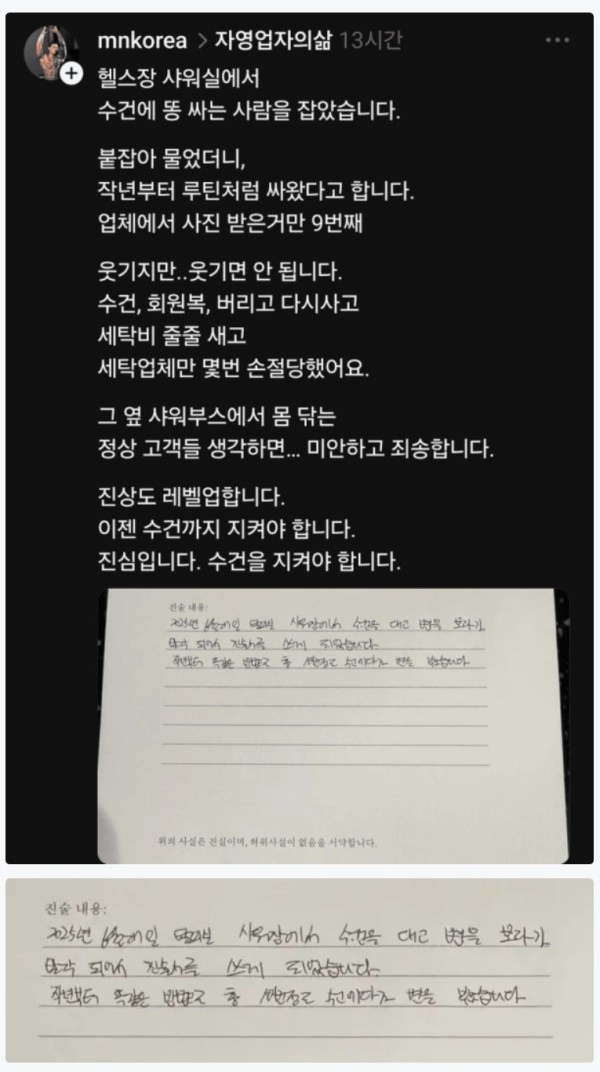 mnkorea > 자영업자의삶 13시간
헬스장 샤워실에서
수건에 똥 싸는 사람을 잡았습니다.
붙잡아 물었더니,
작년부터 루틴처럼 싸왔다고 합니다.
업체에서 사진 받은거만 9번째
웃기지만..웃기면 안 됩니다.
수건, 회원복, 버리고 다시사고
세탁비 줄줄 새고
세탁업체만 몇번 손절당했어요.
그 옆 샤워부스에서 몸 닦는
정상 고객들 생각하면... 미안하고 죄송합니다.
진상도 레벨업합니다.
이젠 수건까지 지켜야 합니다.
진심입니다. 수건을 지켜야 합니다.
진술 내용:
2025년 샤워장에서 수건을 대고 변을 보다가
발각 되어서 진술서를 쓰게 되었습니다.
작년부터 똑같은 방법으로 총 수건에다가 변을 봤습니다
위의 사실은 진실이며, 허위사실이 없음을 서약합니다.
진술 내용:
2025년 샤워장에서 수건을 대고 변을 보다가
발각 되어서 진술서를 쓰게 되었습니다.
작년부터 똑같은 방법으로 총 수건에다가 변을 봤습니다